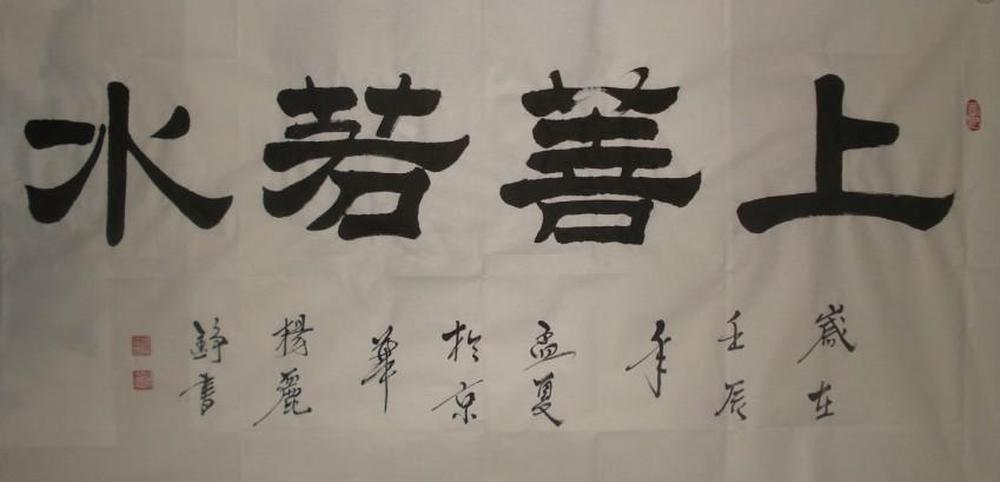 上善若水
歲在
壬辰
年
孟夏
於京
華
楊麗
錚書